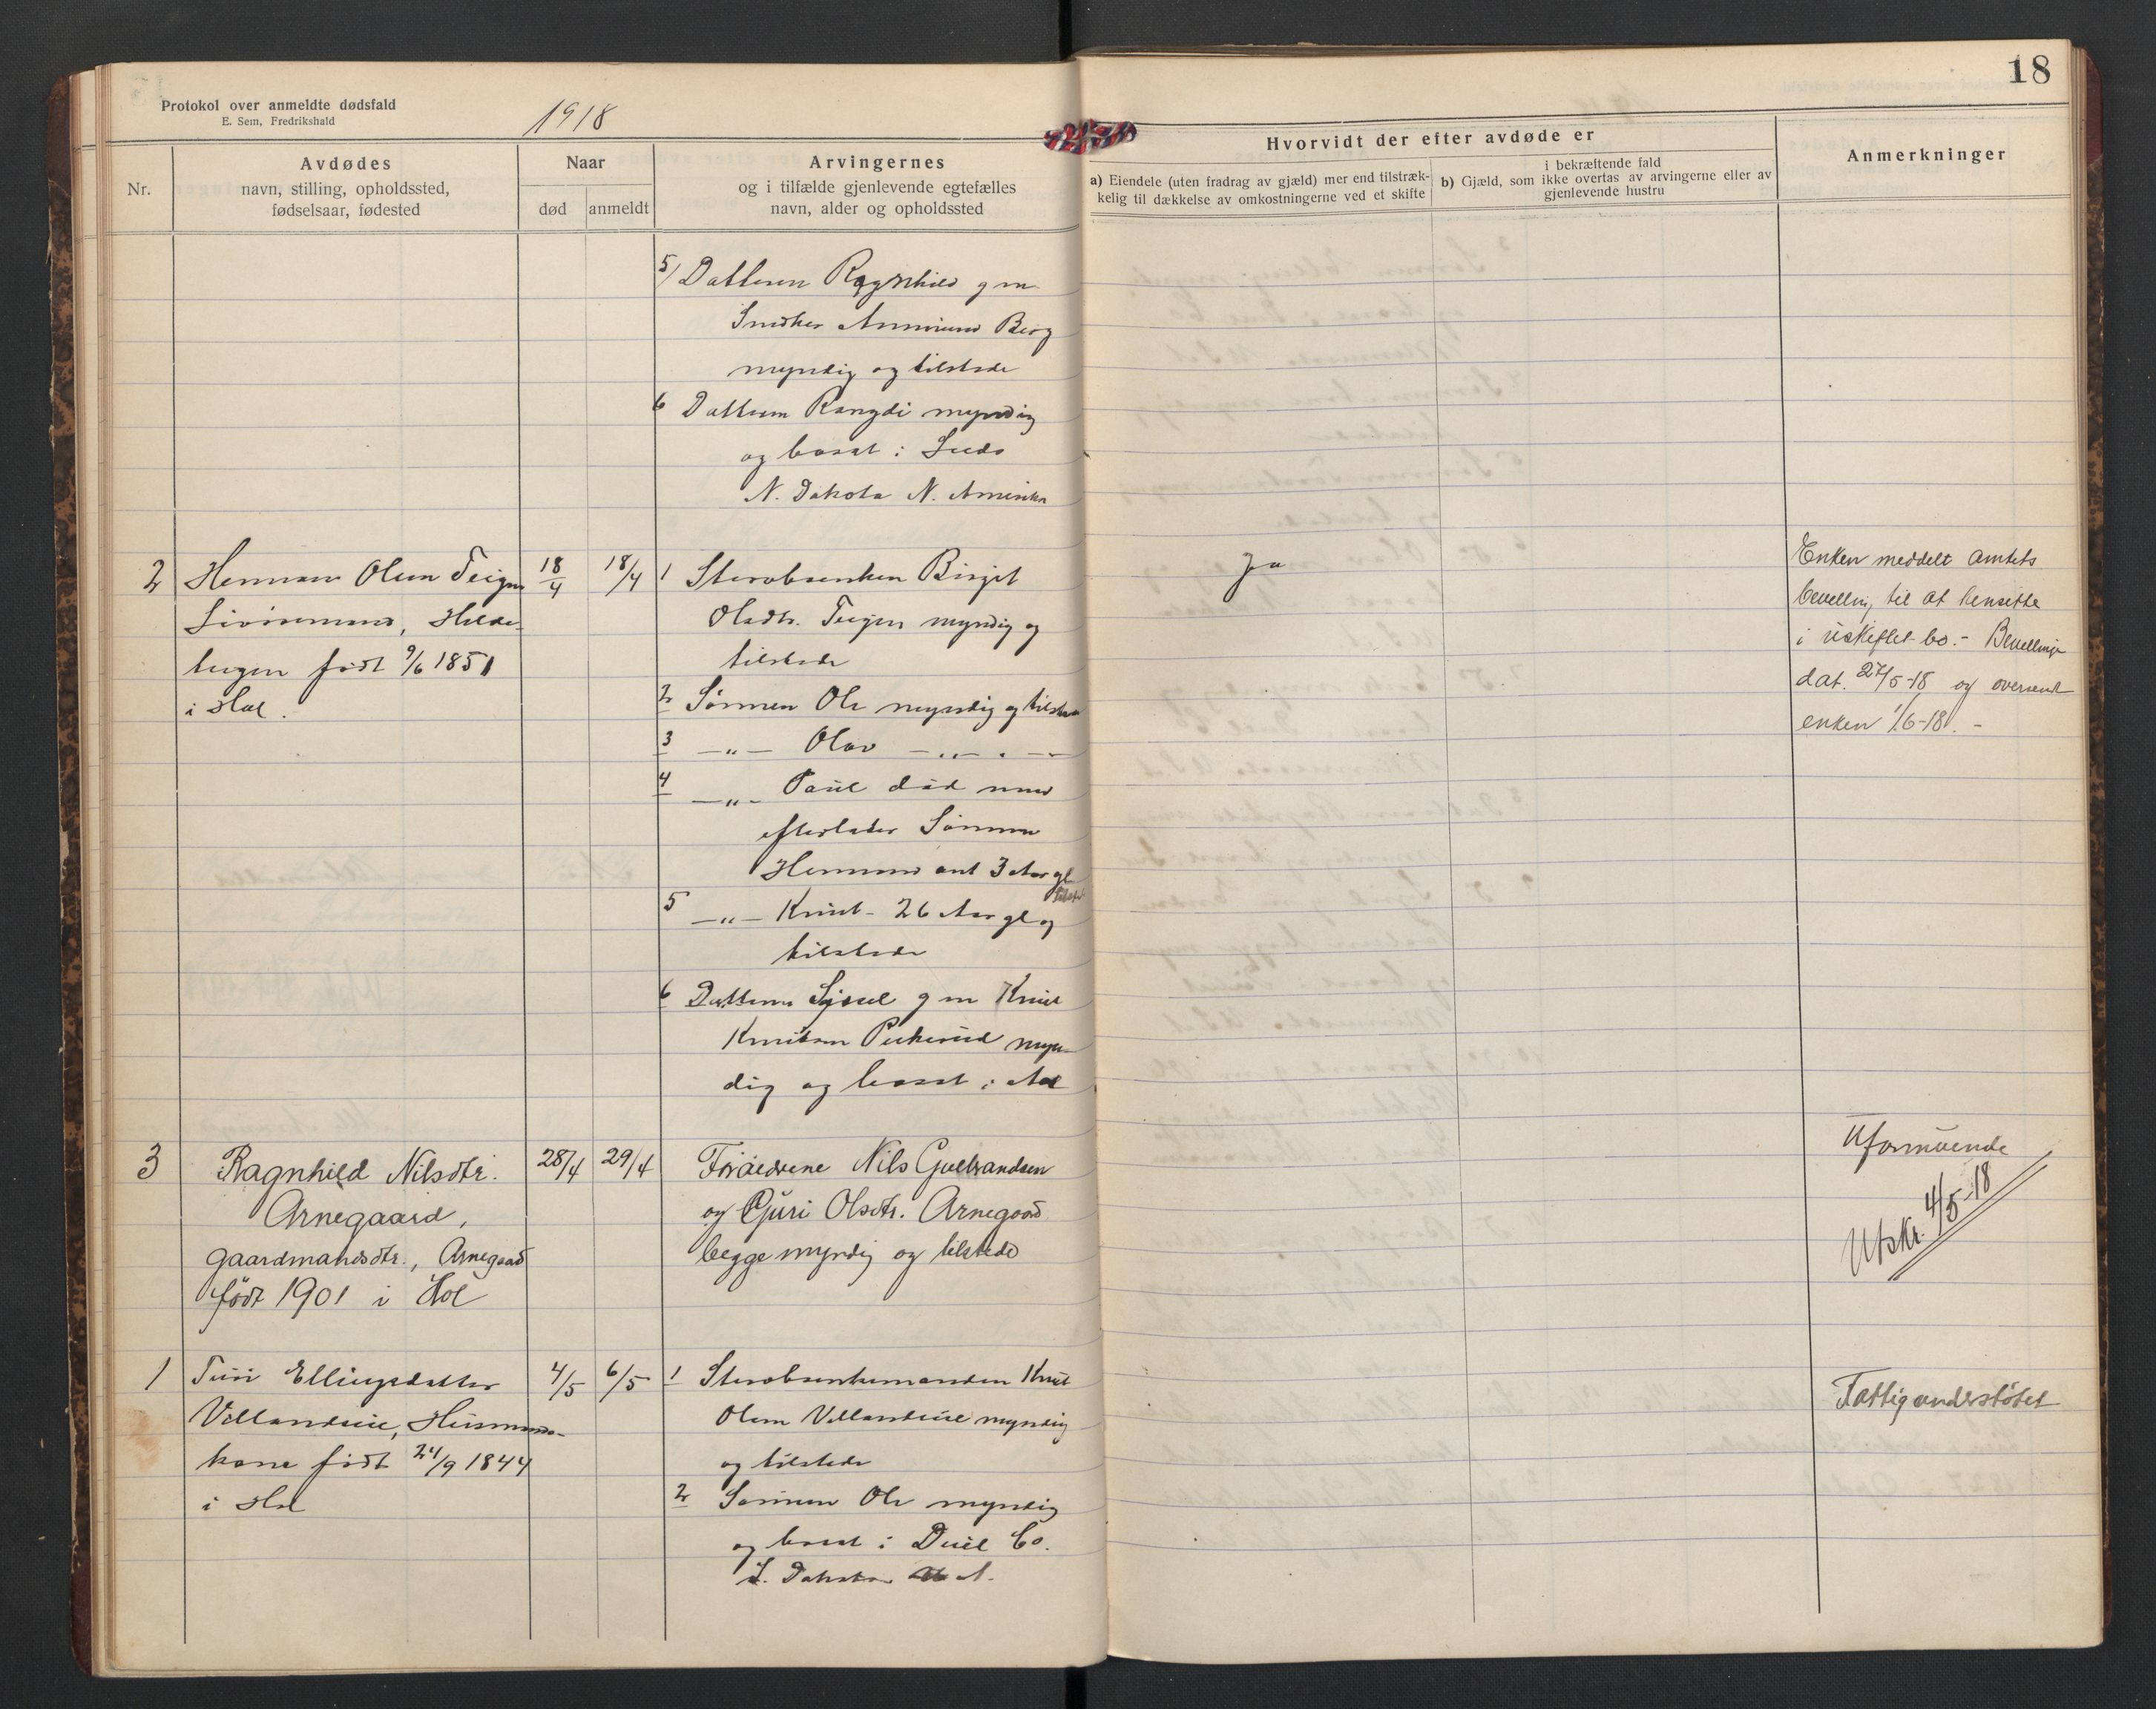 18
Protokol over anmeldte dødsfald
E. Sem, Fredrikshald
1918
Nr.
Avdødes
navn, stilling, opholdssted,
fødselsaar, fødested
Naar
død
anmeldt
Arvingernes
og i tilfælde gjenlevende egtefælles
navn, alder og opholdssted
Hvorvidt der efter avdøde er
a) Eiendele (uten fradrag av gjæld) mer end tilstræk-
kelig til dækkelse av omkostningerne ved et skifte
i bekræftende fald
b) Gjæld, som ikke overtas av arvingerne eller av
gjenlevende hustru
Anmerkninger
5/ Datteren Ragnhild g m
Snedker Ammund Berg
myndig og tilstede
6 Datteren Rangdi myndig
og bosat i Leeds
N. Dakota N. Amerika
2
Herman Olsen Teigen
Livøremand, Hilde-
teigen født 9/6 1851
i Hol.
18/4
18/4
1 Stervboenken Birgit
Olsdtr. Teigen myndig og
tilstede
2 Sønnen Ole myndig og tilstede
3 —"— Olav —"—
4 —"— Paul død men
efterlater Sønnen
Hermund ant 3 Aar gl
tilstede
5 —"— Knut - 26 Aar gl og
tilstede
6 Datteren Sissel g m Knut
Knutsen myn-
dig og bosat i Aal
Ja
Enken meddelt amtets
bevelling til at hensitte
i uskiftet bo. - Bevellingen
dat. 27/5-18 og oversendt
enken 1/6-18. -
3
Ragnhild Nilsdtr.
Arnegaard,
gaardmandsdtr., Arnegaard
født 1901 i Hol
28/4
29/4
Forældrene Nils Gulbrandsen
og Guri Olsdtr. Arnegaard
begge myndig og tilstede
Uformuende
Utskr. 4/5-18
1
Turi Ellingsdatter
Villandeie, Husmands-
kone født 24/9 1844
i Hol
4/5
6/5
1 Stervboenkemanden Knut
Olsen Villandeie myndig
og tilstede
2 Sønnen Ole myndig
og bosat i Duel Co.
S. Dakota N A.
Fattigunderstøtet